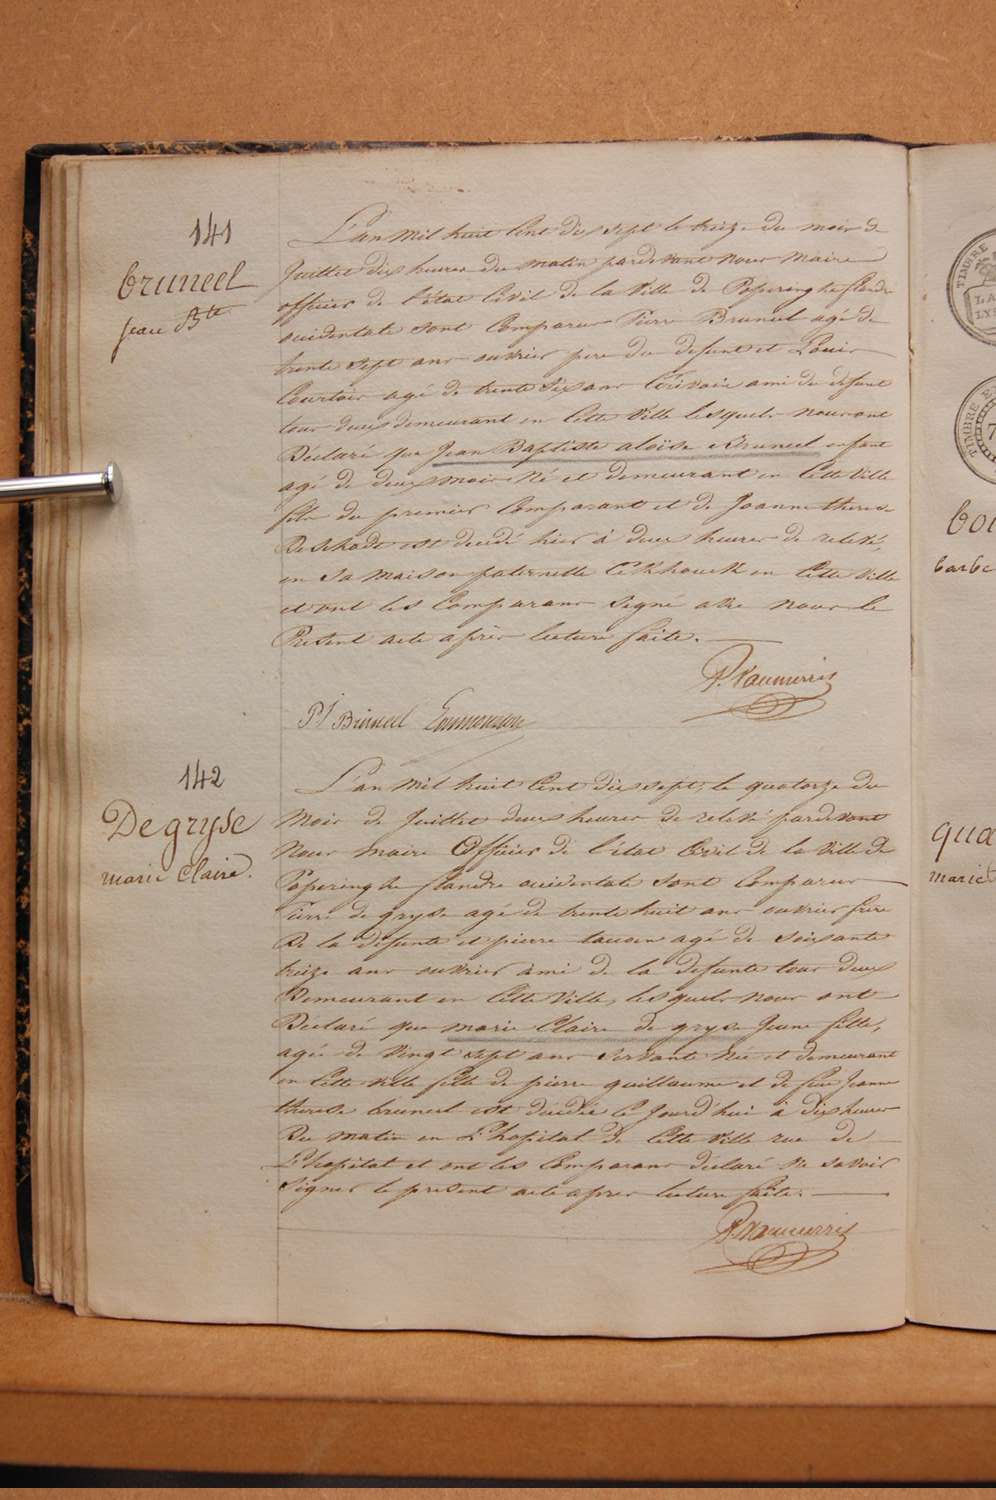 141
bruneel
jean Bte
L'an Mil huit Cent dix sept le treize du mois de
Juillet dix heures du matin pardevant nous Maire
officier de l'état Civil de la Ville de Poperinghe flandre
occidentale sont Comparus Pierre Bruneel agé de
trente sept ans ouvrier pere du defunt et Louis
Courtois agé de trente six ans Ecrivain ami du defunt
tous deux demeurant en Cette Ville lesquels nous ont
Déclaré que Jean Baptiste aloïse Bruneel enfant
agé de deux mois Né et demeurant en Cette Ville
fils du premier Comparant et de Joanne therese
est decedé hier à deux heures de relevé,
en Sa Maison paternelle en Cette Ville
et ont les Comparans Signé avec nous le
Présent acte après lecture faite.
P. Vanmerris
PJ Bruneel
142
De gryse
marie Claire.
L'an Mil huit Cent dix sept, le quatorze du
Mois de Juillet deux heures de relevé pardevant
Nous maire Officier de l'état Civil de la Ville de
Poperinghe flandre occidentale sont Comparus
Pierre de gryse agé de trente huit ans ouvrier frere
De la défunte et pierre agé de Soixante
treize ans ouvrier ami de la defunte tous deux
Demeurant en Cette Ville, lesquels nous ont
Déclaré que marie Claire de gryse Jeune fille,
agée de Vingt sept ans Servante Née et demeurant
en Cette Ville fille de pierre guillaume et de feue Jeanne
therese bruneel est décédée Ce Jourd'hui à dix heures
Du matin en L'hopital de Cette Ville rue de
L'hopital et ont les Comparans déclaré Ne savoir
Signer le présent acte apres lecture faite.
P. Vanmerris
TIMBRE
TIMBRE
7
barbe
qua
marie